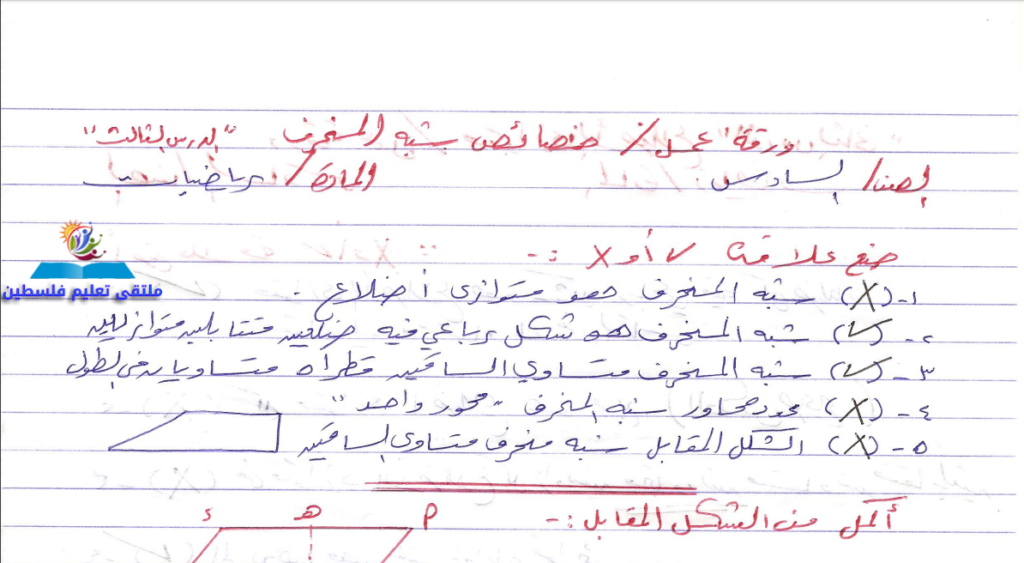 ورقة عمل / خصائص شبه المنحرف "الدرس الثالث"
الصف / السادس. المادة / رياضيات
ضع علامة √ أو X :-
ملتقى تعليم فلسطين
١- (X) شبه المنحرف هو متوازي أضلاع.
٢- (√) شبه المنحرف هو شكل رباعي فيه ضلعين متقابلين متوازيين
٣- (√) شبه المنحرف متساوي الساقين قطراه متساويان في الطول
٤- (X) عدد محاور شبه المنحرف "محور واحد"
٥- (X) الشكل المقابل شبه منحرف متساوي الساقين
أكمل من الشكل المقابل :-
أ هـ د